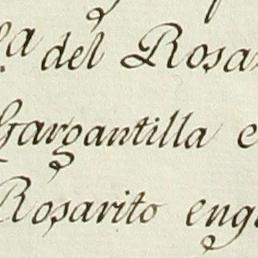 del Rosa
Gargantilla e
Rosarito eng